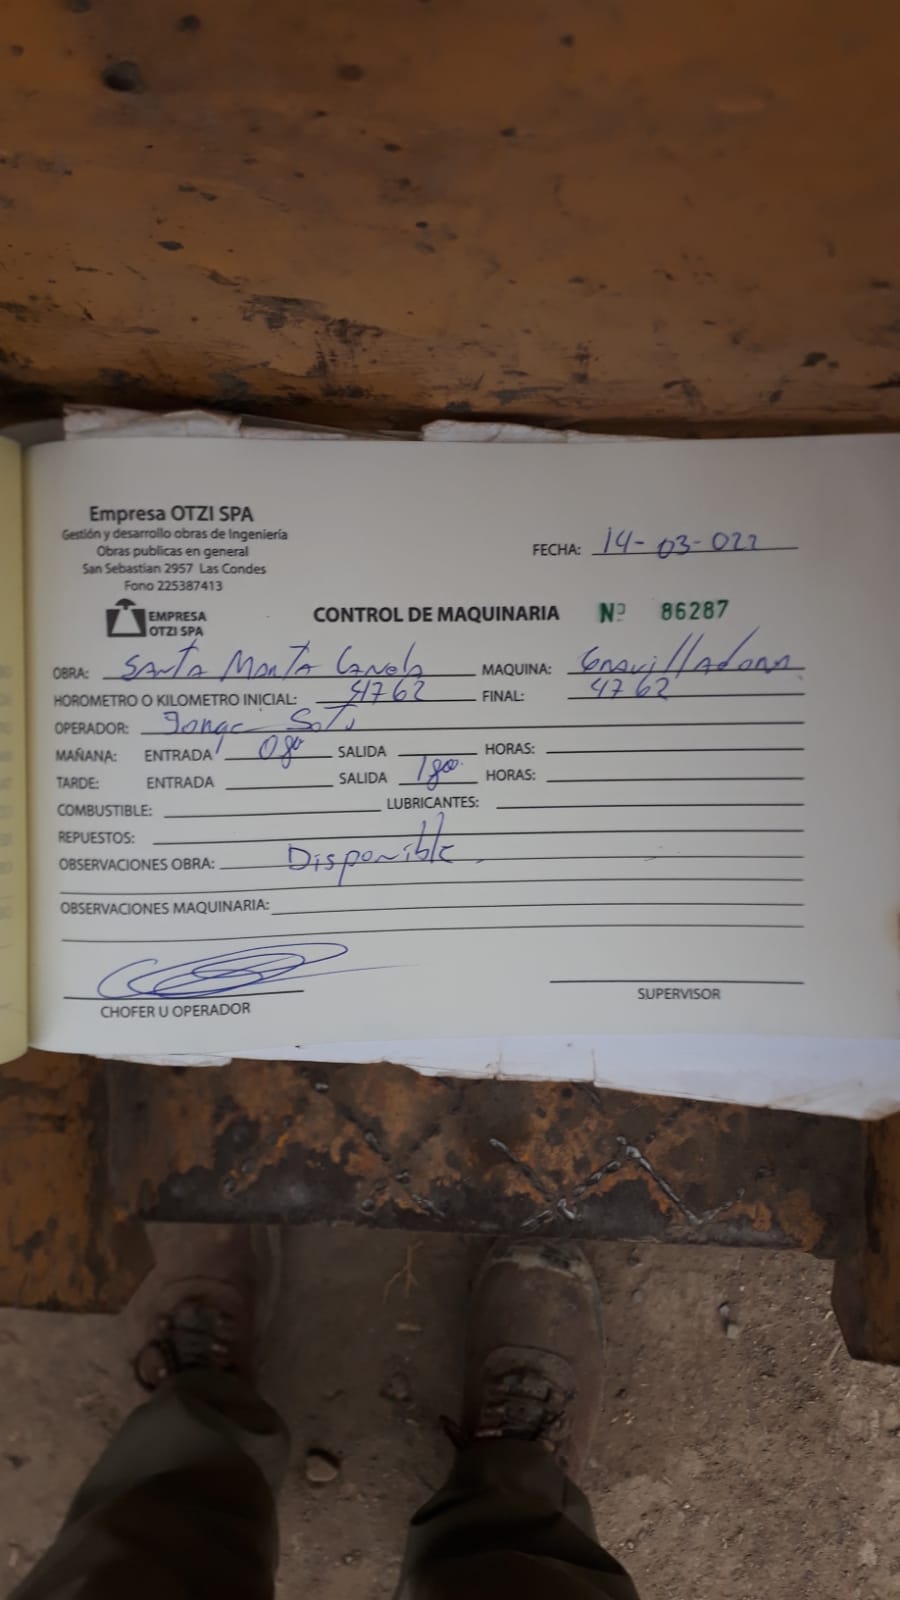 Empresa OTZI SPA
Gestión y desarrollo obras de Ingeniería
Obras publicas en general
San Sebastian 2957 Las Condes
Fono 225387413
FECHA: 14-03-022
EMPRESA
OTZI SPA
CONTROL DE MAQUINARIA Nº 86287
OBRA: Santa Marta Canela MAQUINA: Gravilladora
HOROMETRO O KILOMETRO INICIAL: 4762 FINAL: 4762
OPERADOR: Jorge Soto
MAÑANA: ENTRADA 0800 SALIDA HORAS:
TARDE: ENTRADA SALIDA 1800 HORAS:
COMBUSTIBLE: LUBRICANTES:
REPUESTOS:
OBSERVACIONES OBRA: Disponible.
OBSERVACIONES MAQUINARIA:
CHOFER U OPERADOR SUPERVISOR